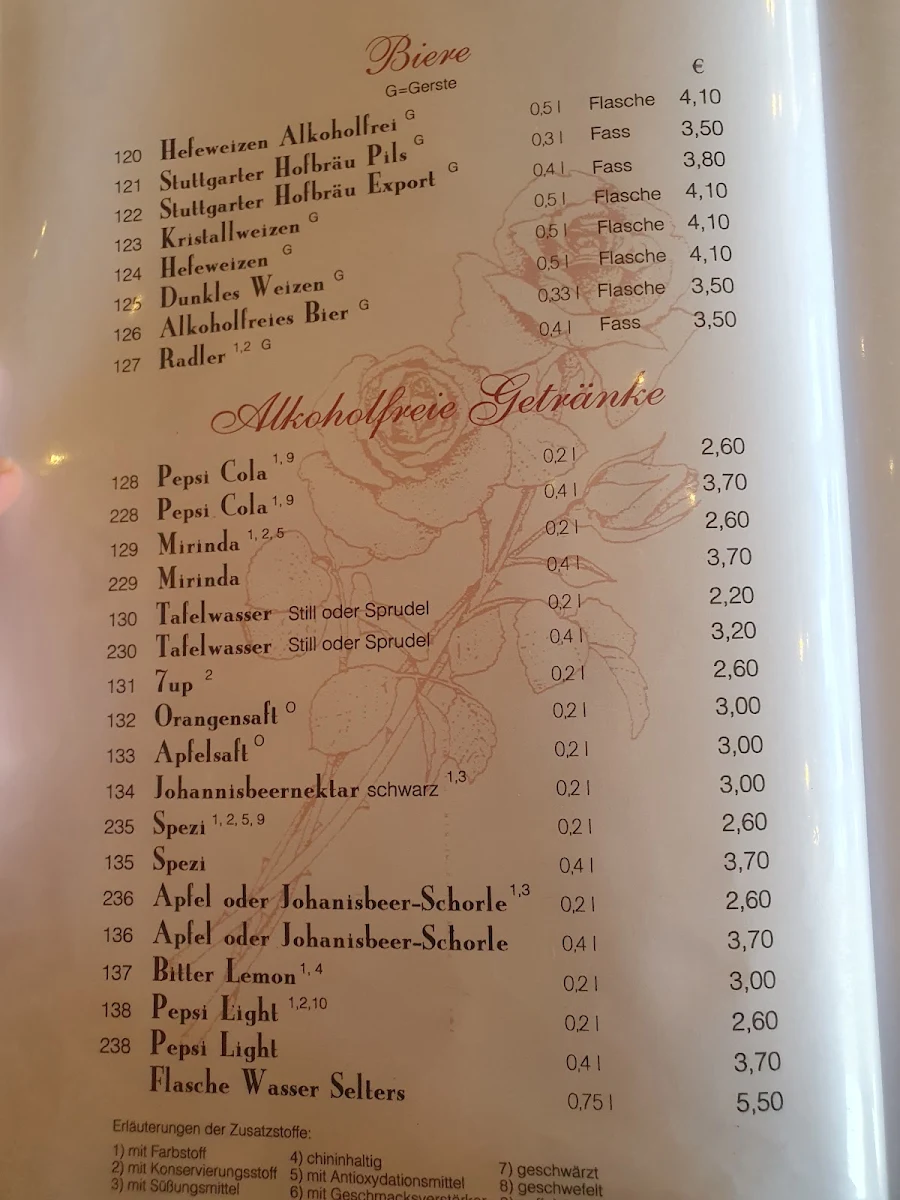 Biere
G=Gerste
€
120 Hefeweizen Alkoholfrei G 0,5 l Flasche 4,10
121 Stuttgarter Hofbräu Pils G 0,3 l Fass 3,50
122 Stuttgarter Hofbräu Export G 0,4 l Fass 3,80
123 Kristallweizen G 0,5 l Flasche 4,10
124 Hefeweizen G 0,5 l Flasche 4,10
125 Dunkles Weizen G 0,5 l Flasche 4,10
126 Alkoholfreies Bier G 0,33 l Flasche 3,50
127 Radler 1,2 G 0,4 l Fass 3,50
Alkoholfreie Getränke
128 Pepsi Cola 1, 9 0,2 l 2,60
228 Pepsi Cola 1, 9 0,4 l 3,70
129 Mirinda 1, 2, 5 0,2 l 2,60
229 Mirinda 0,4 l 3,70
130 Tafelwasser Still oder Sprudel 0,2 l 2,20
230 Tafelwasser Still oder Sprudel 0,4 l 3,20
131 7up 2 0,2 l 2,60
132 Orangensaft O 0,2 l 3,00
133 Apfelsaft O 0,2 l 3,00
134 Johannisbeernektar schwarz 1,3 0,2 l 3,00
235 Spezi 1, 2, 5, 9 0,2 l 2,60
135 Spezi 0,4 l 3,70
236 Apfel oder Johanisbeer-Schorle 1,3 0,2 l 2,60
136 Apfel oder Johanisbeer-Schorle 0,4 l 3,70
137 Bitter Lemon 1, 4 0,2 l 3,00
138 Pepsi Light 1,2,10 0,2 l 2,60
238 Pepsi Light 0,4 l 3,70
Flasche Wasser Selters 0,75 l 5,50
Erläuterungen der Zusatzstoffe:
1) mit Farbstoff
2) mit Konservierungsstoff
3) mit Süßungsmittel
4) chininhaltig
5) mit Antioxydationsmittel
6) mit Geschmacksverstärker
7) geschwärzt
8) geschwefelt